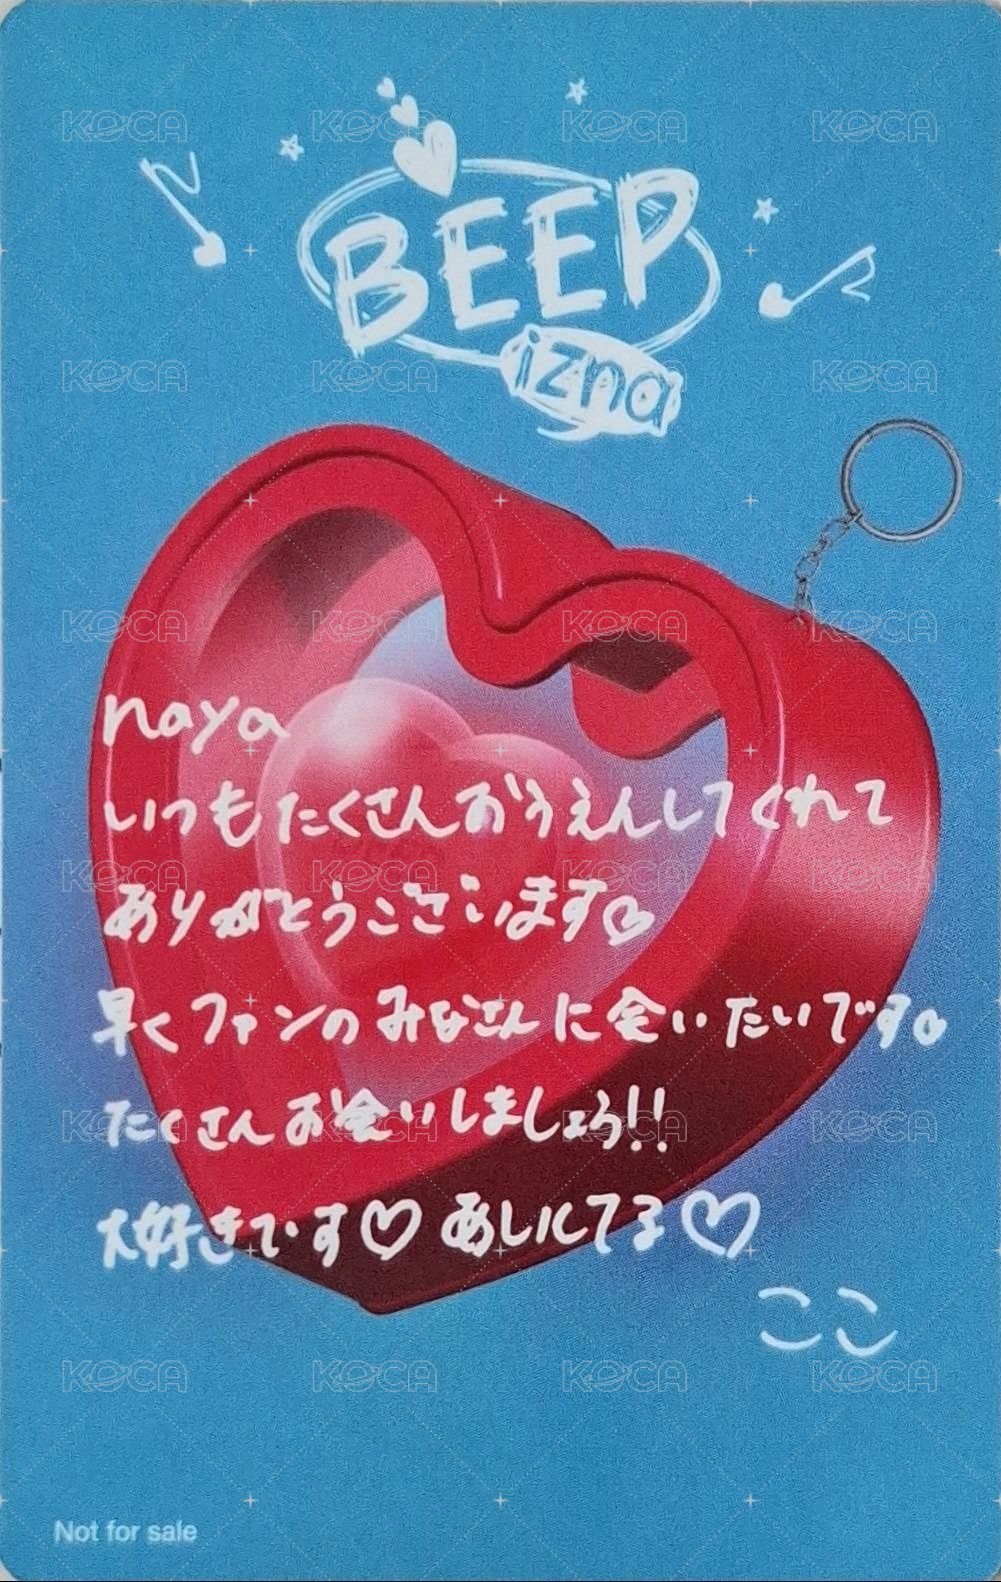 BEEP
izna
naya
いつもたくさんおうえんしてくれて
ありがとうございます♡
早くファンのみなさんに会いたいです♡
たくさんお会いしましょう!!
大好きです♡ あいしてる♡
ここ
Not for sale
KOCA